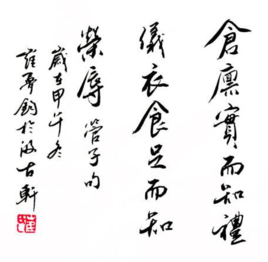 倉廩實而知禮
儀衣食足而知
榮辱 管子句
歲在甲午冬
於汲古軒